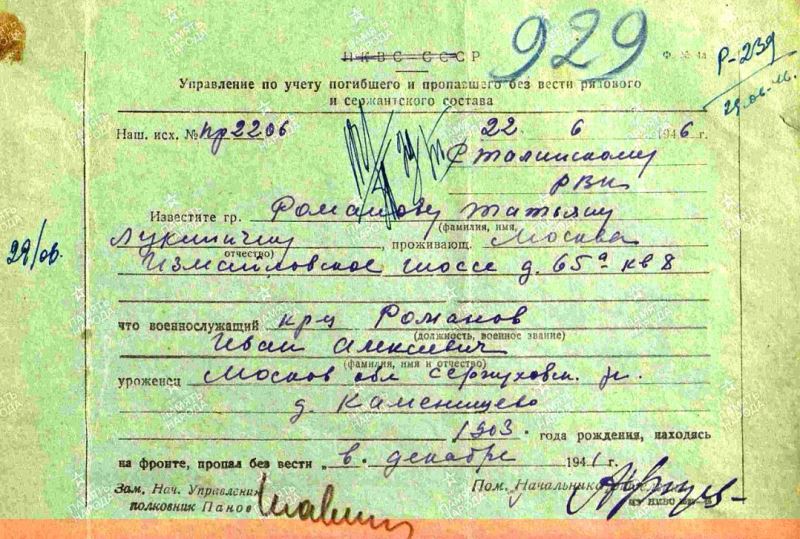 929
НКВС СССР
Ф. № 4а
Р-239
29.06.46.
Управление по учету погибшего и пропавшего без вести рядового
и сержантского состава
Наш. исх. № пр2206
22 6 1946 г.
Сталинскому
РВК
Известите гр. Романову Татьяну
(фамилия, имя,
Лукиничну, проживающ. Москва
отчество)
Измайловское шоссе д. 65а кв 8
29/06.
что военнослужащий кр-ц Романов
(должность, военное звание)
Иван Алексеевич
(фамилия, имя и отчество)
уроженец Москов обл Серпуховск. р.
д. Каменищево
1903 года рождения, находясь
на фронте, пропал без вести „в декабре 1941 г.
Зам. Нач. Управления
полковник Панов
Пом. Начальника